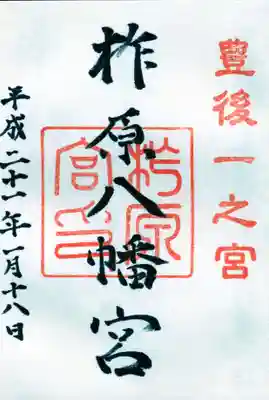 豊後一之宮
柞原八幡宮
平成二十一年一月十八日
柞原宮印